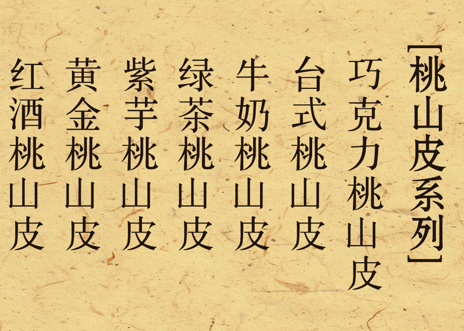 [桃山皮系列]
巧克力桃山皮
台式桃山皮
牛奶桃山皮
绿茶桃山皮
紫芋桃山皮
黄金桃山皮
红酒桃山皮